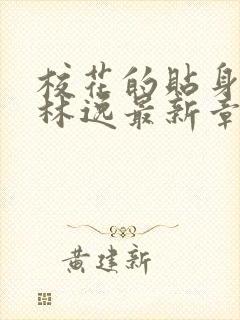 校花的贴身
林逸最新章
黄建新